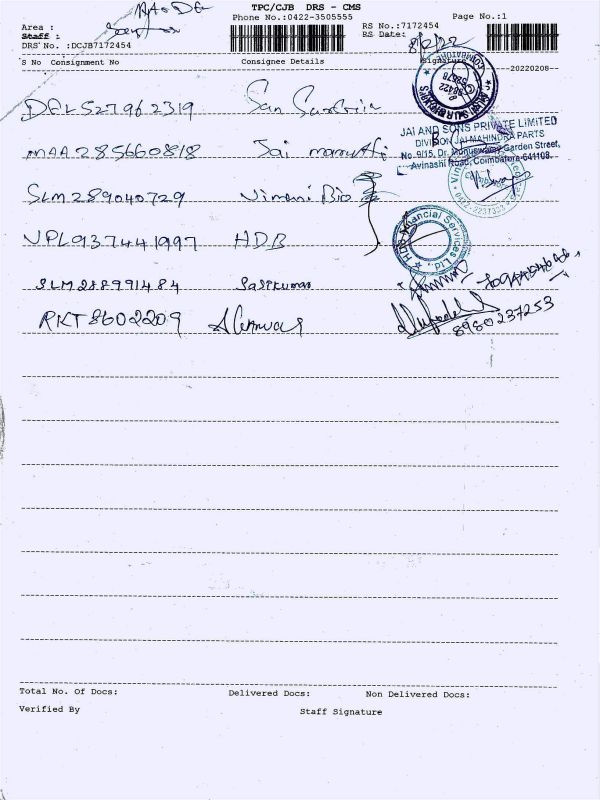 TPC/CJB DRS - CMS
Phone No.:0422-3505555 Page No.:1
Area : RS No.:7172454
Staff : RS Date: 8/2/22
DRS No. :DCJB7172454
S No Consignment No Consignee Details Signature
20220208
DEL527962319 San
JAI AND SONS PRIVATE LIMITED
DIVISION JAI MAHINDRA PARTS
MAA285660818 Jai maruthi
No. 9/15, Dr. Garden Street,
Avinashi Road, Coimbatore-641108.
SLM289040729 Vimani Bio
0422-2237333
VPL937441997 HDB
HDB Financial Services Ltd.
SLM288991484 Sasikumar
RKT8602209
8980237253
Total No. Of Docs: Delivered Docs: Non Delivered Docs:
Verified By Staff Signature